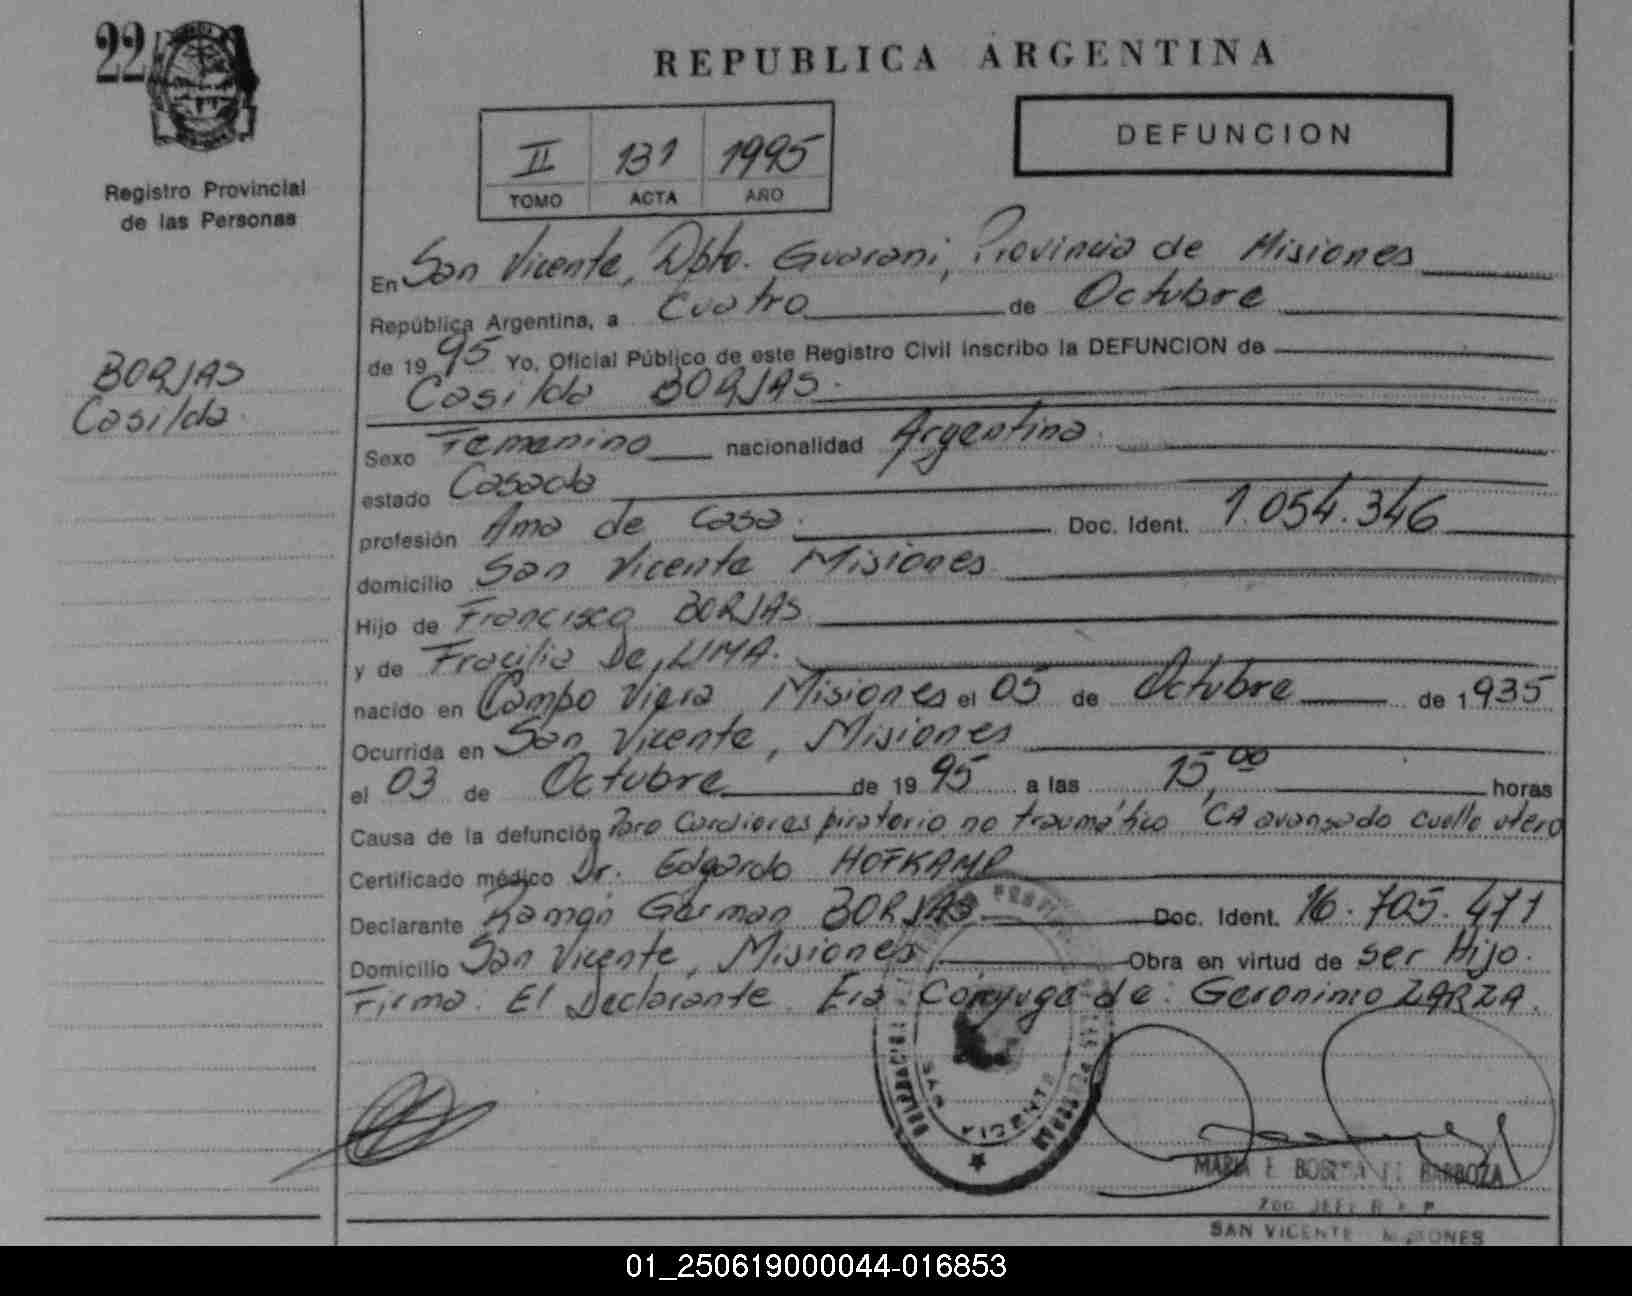 22
Registro Provincial
de las Personas
BORJAS
Casilda
REPUBLICA ARGENTINA
II 131 1995
TOMO ACTA AÑO
DEFUNCION
En San Vicente, Dpto. Guarani, Provincia de Misiones
República Argentina, a Cuatro de Octubre
de 1995 Yo, Oficial Público de este Registro Civil inscribo la DEFUNCION de
Casilda BORJAS.
Sexo Femenino nacionalidad Argentina.
estado Casada
profesión Ama de Casa. Doc. Ident. 1.054.346
domicilio San Vicente Misiones
Hijo de Francisco BORJAS
y de Fracilia De LIMA.
nacido en Campo Viera Misiones el 05 de Octubre de 1935
Ocurrida en San Vicente, Misiones
el 03 de Octubre de 1995 a las 15,00 horas
Causa de la defunción Paro Cardiorespiratorio no traumático CA avanzado cuello utero
Certificado médico Dr. Edgardo HOFKAMP
Declarante Ramon German BORJAS Doc. Ident. 16.705.471
Domicilio San Vicente, Misiones, Obra en virtud de ser Hijo.
Firma. El Declarante. Era Conyuge de: Geronimo ZARZA.
SAN VICENTE
MARIA E. BARBOZA
2do JEFE R.P.P.
SAN VICENTE MISIONES
01_250619000044-016853